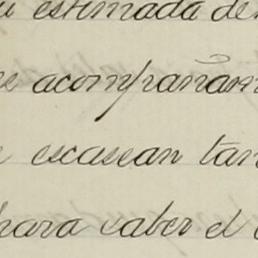 estimada de
acompañan
escasean tan
para saber el